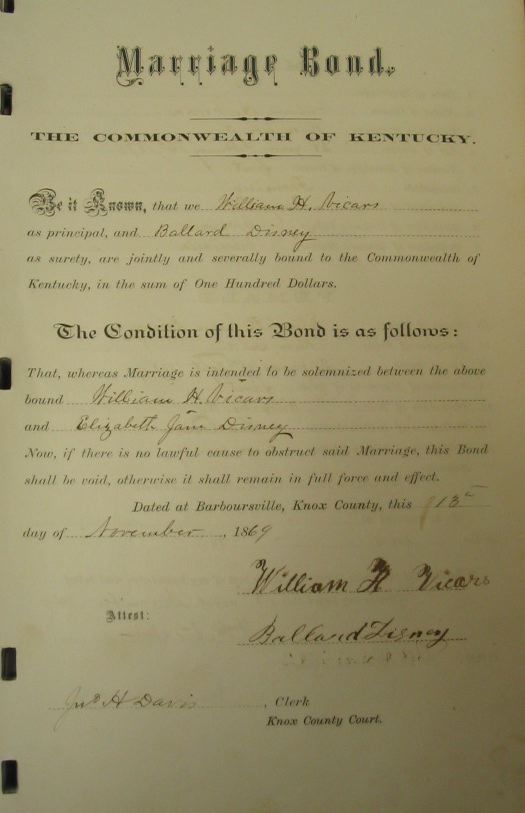 Marriage Bond.
THE COMMONWEALTH OF KENTUCKY.
Be it Known, that we William H. Vicars
as principal, and Ballard Disney
as surety, are jointly and severally bound to the Commonwealth of
Kentucky, in the sum of One Hundred Dollars.
The Condition of this Bond is as follows:
That, whereas Marriage is intended to be solemnized between the above
bound William H. Vicars
and Elizabeth Jane Disney
Now, if there is no lawful cause to obstruct said Marriage, this Bond
shall be void, otherwise it shall remain in full force and effect.
Dated at Barboursville, Knox County, this 13
day of November, 1869
William H Vicars
Attest:
Ballard Disney
Jno H Davis, Clerk
Knox County Court.